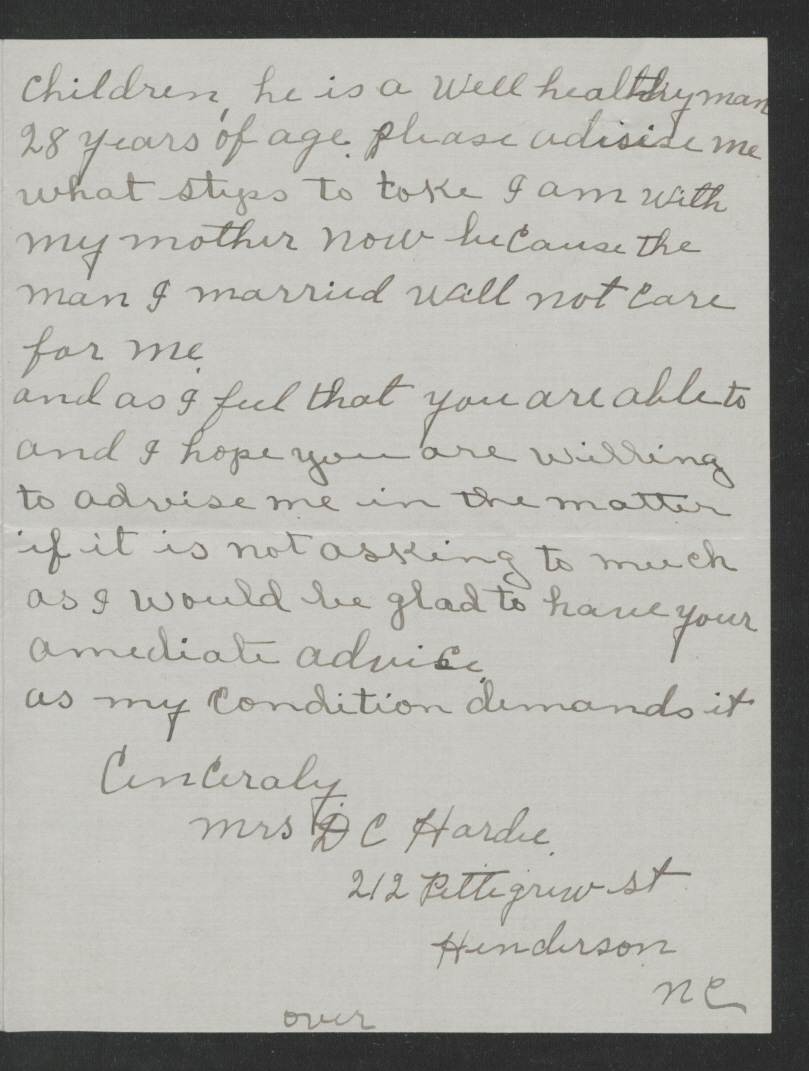 Children, he is a Well healthy man
28 years of age. please adisise me
what steps to take I am with
my mother now because the
man I married will not care
for me.
and as I feel that you are able to
and I hope you are willing
to advise me in the matter
if it is not asking to much
as I would be glad to have your
amediate advice.
as my Condition demands it
Cinceraly
Mrs D C Hardie.
212 Pettigrew st
Henderson
NC
over